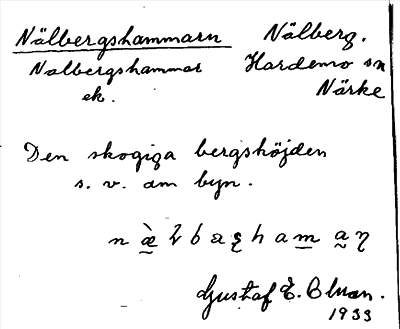 Nälbergshammarn
Nälberg.
Nalbergshammar
Hardemo sn
ek.
Närke
Den skogiga bergshöjden
s. v. om byn.
Gustaf E.
1933